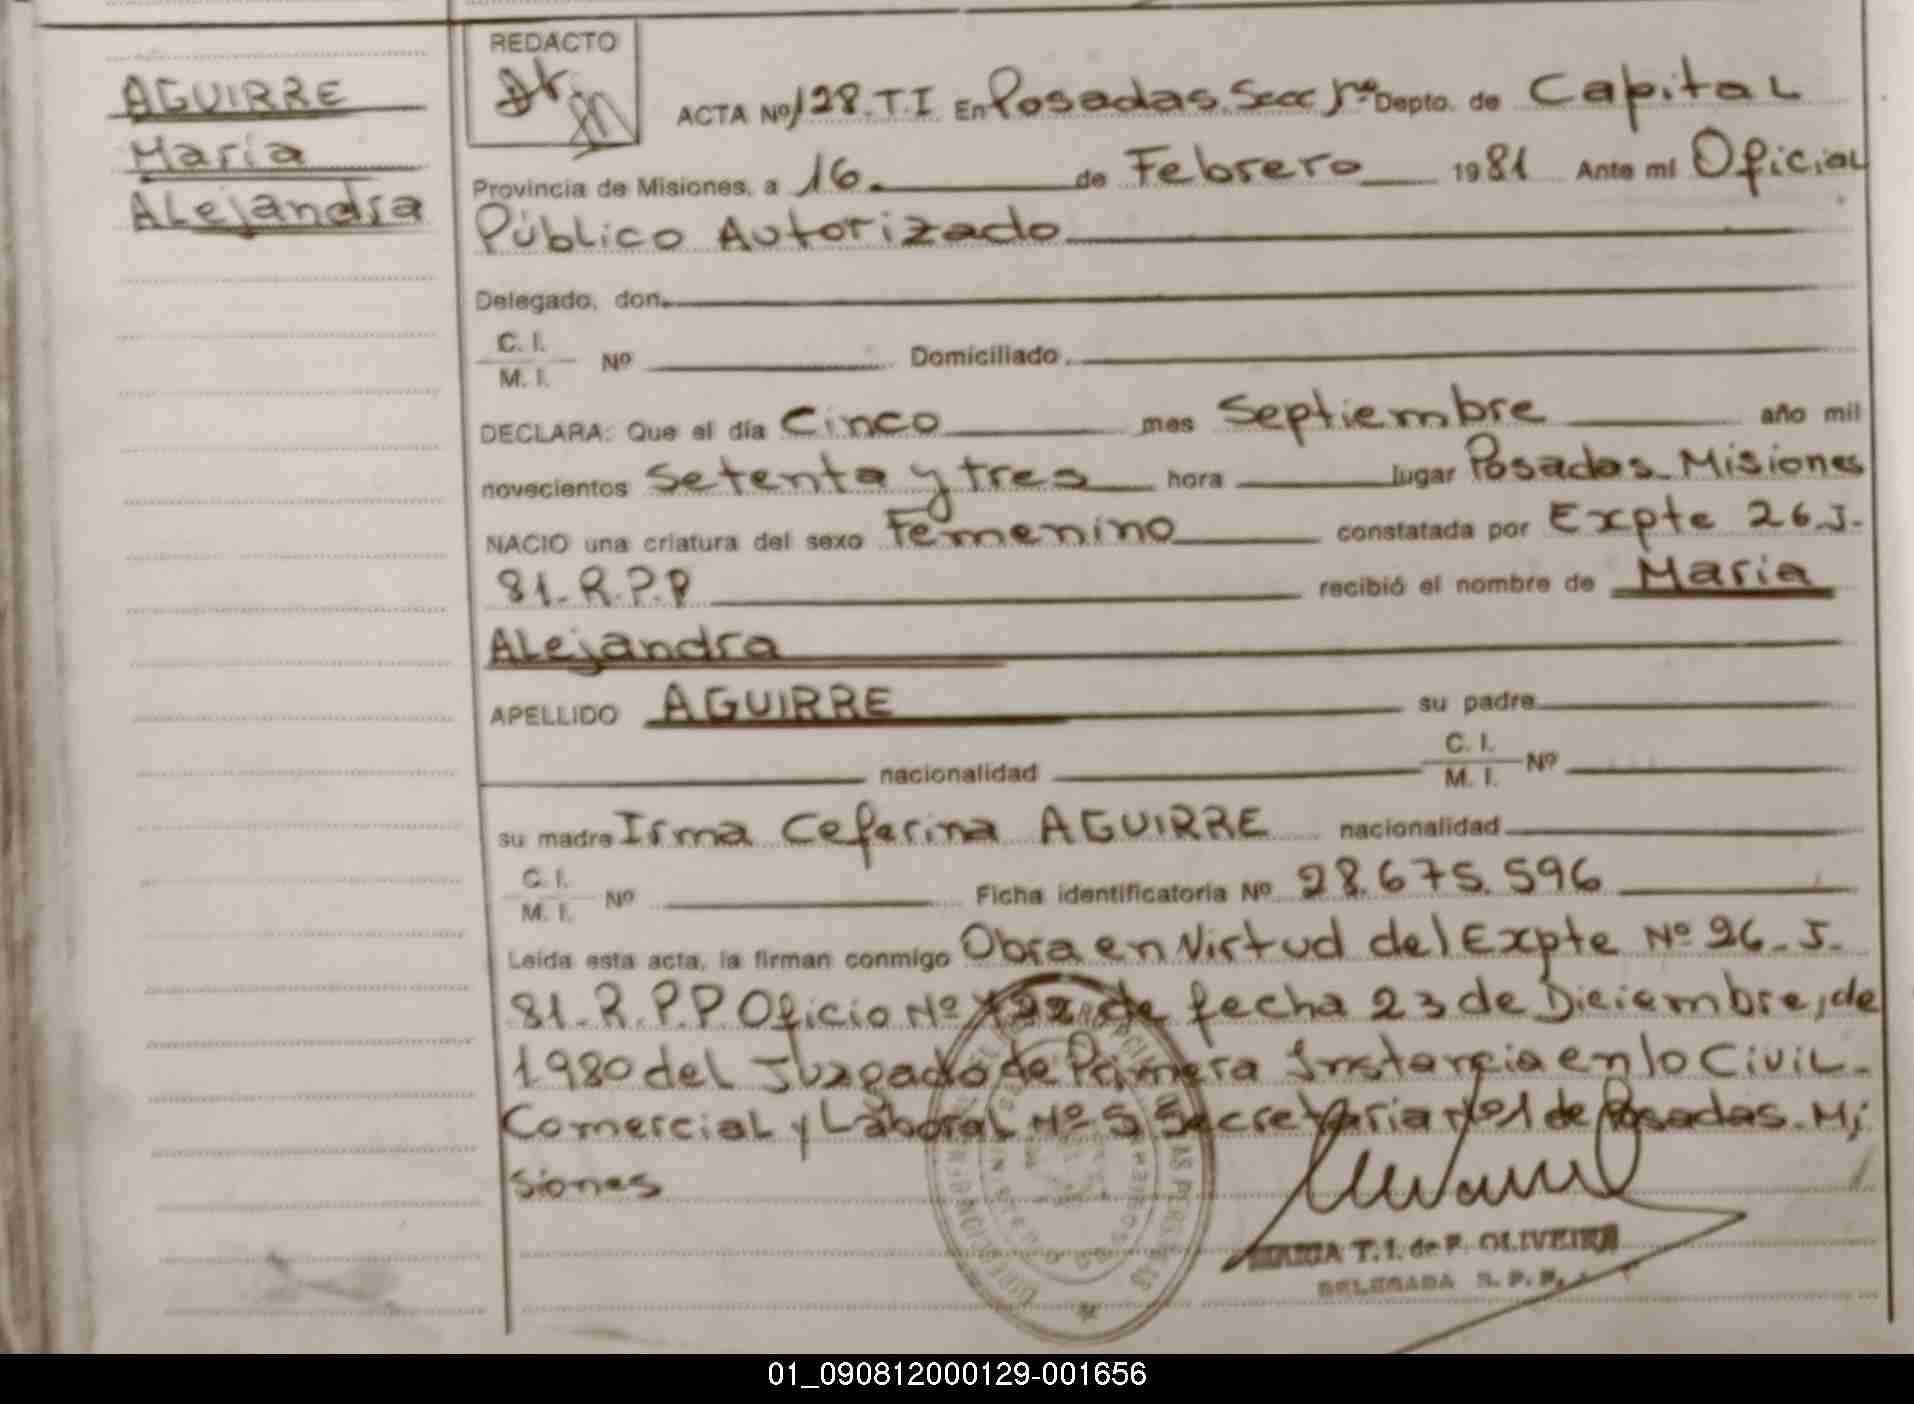 AGUIRRE
Maria
Alejandra
REDACTO
ACTA Nº 128.T.I En Posadas. Secc 1ra Depto. de Capital
Provincia de Misiones, a 16. de Febrero 1981 Ante mí Oficial
Público Autorizado
Delegado, don.
C. I.
M. I. Nº Domiciliado.
DECLARA: Que el día Cinco mes Septiembre año mil
novecientos Setenta y tres hora lugar Posadas. Misiones
NACIO una criatura del sexo Femenino constatada por Expte 26.J.
81.R.P.P recibió el nombre de Maria
Alejandra
APELLIDO AGUIRRE su padre
nacionalidad C. I.
M. I. Nº
su madre Irma Ceferina AGUIRRE nacionalidad
C. I.
M. I. Nº Ficha identificatoria Nº 28.675.596
Leída esta acta, la firman conmigo Obra en Virtud del Expte Nº 26.J.
81.R.P.P. Oficio Nº de fecha 23 de Diciembre, de
1980 del Juzgado de Primera Instancia en lo Civil.
Comercial y Laboral Nº 5 Secretaria Nº 1 de Posadas. Mi
siones
MARIA T. I. de P. OLIVEIRA
DELEGADA R. P. P.
01_090812000129-001656